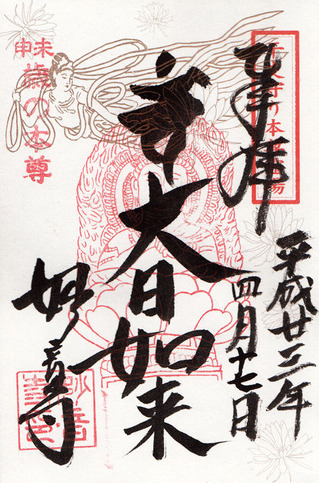 奉拝
平成廿三年
四月十七日
大日如来
妙音寺
未申
歳の本尊